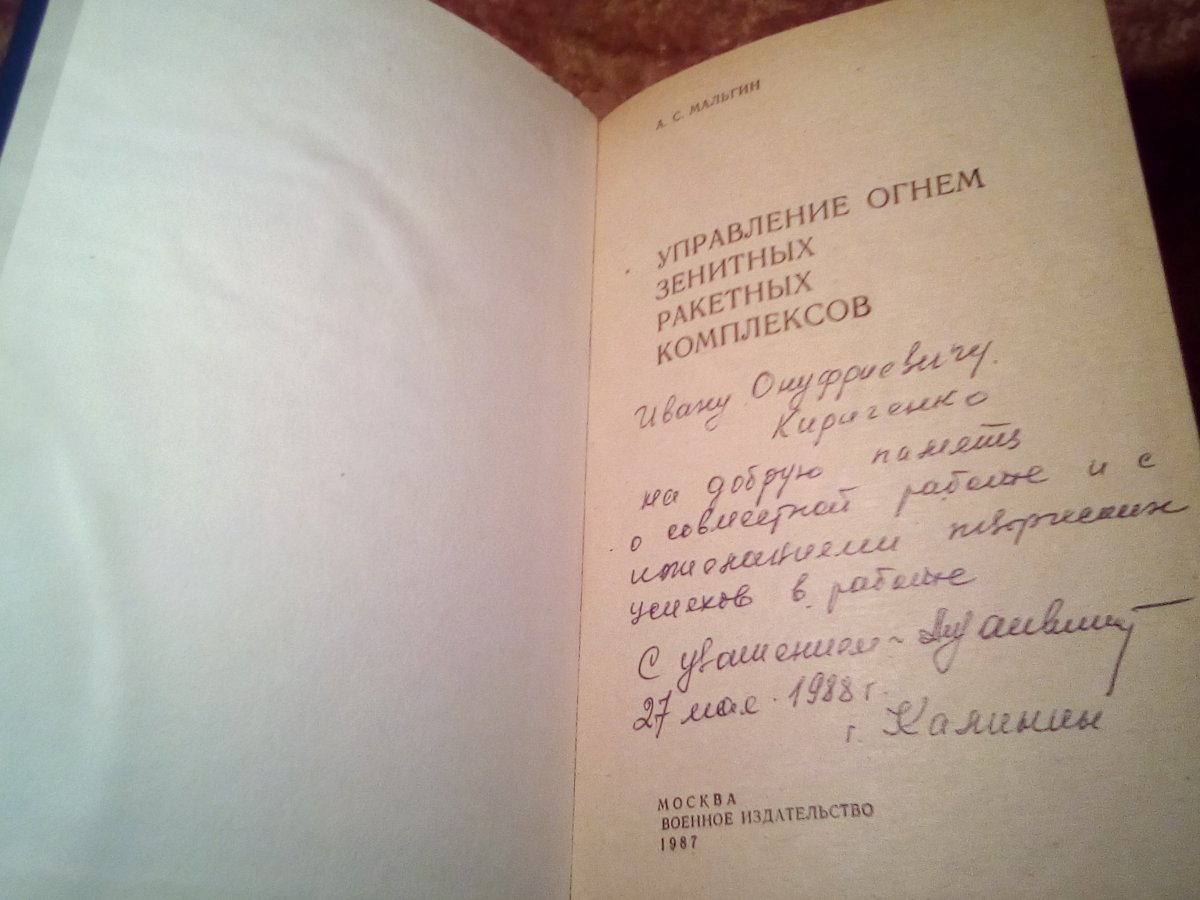 А. С. МАЛЬГИН
УПРАВЛЕНИЕ ОГНЕМ
ЗЕНИТНЫХ
РАКЕТНЫХ
КОМПЛЕКСОВ
Ивану Онуфриевичу
Кириченко
на добрую память
о совместной работе и с
пожеланиями творческих
успехов в работе
С уважением -
27 мая 1988 г.
г. Калинин
МОСКВА
ВОЕННОЕ ИЗДАТЕЛЬСТВО
1987